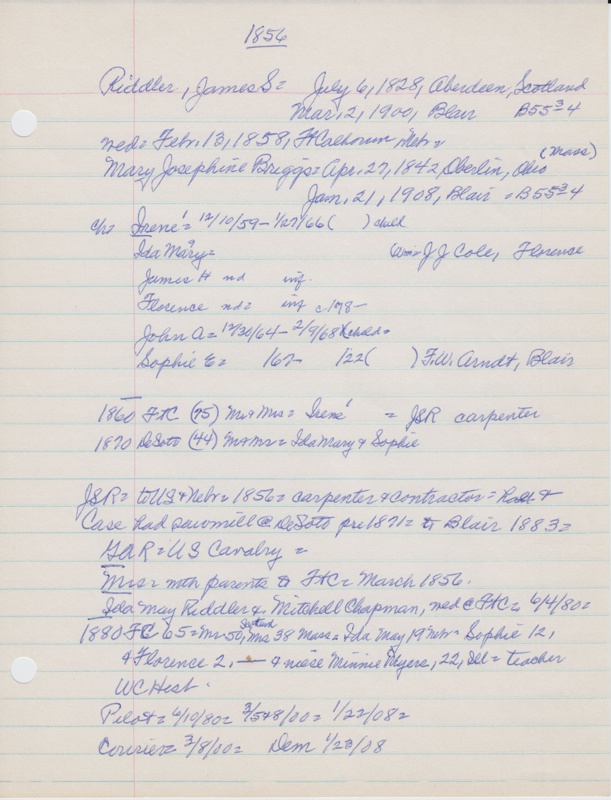 1856
Riddler, James S= July 6, 1828, Aberdeen, Scotland
Mar. 2, 1900, Blair B55-3-4
wed= Febr. 13, 1858, Ft Calhoun, Nebr=
(Mass)
Mary Josephine Briggs= Apr. 27, 1842, Oberlin, Ohio
Jan. 21, 1908, Blair = B55-3-4
ch= Irene'= 12/10/59-1/27/66 ( ) child
Ida Mary= J J Cole, Florence
James H nd inf.
Florence nd= inf c178-
John A= 12/30/64-2/9/68 child=
Sophie E= 167- 122( ) F.W. Arndt, Blair
1860 FtC (75) Mr & Mrs = Irene' = JSR carpenter
1870 DeSoto (44) Mr & Mrs = Ida Mary & Sophie
JSR= to US & Nebr= 1856= carpenter & contractor= &
Case had sawmill @ DeSoto pre 1871= to Blair 1883=
GAR= US Cavalry=
Mrs= with parents to FtC= March 1856.
Ida May Riddler & Mitchell Chapman, wed @ FtC= 6/4/80=
1880 FC 65= Mr 50, Scotland Mrs 38 Mass= Ida May 19 Nebr= Sophie 12,
& Florence 2, — & niese Minnie Myers, 22, Ill= teacher
WCHist.
Pilot= 6/10/80= 3/5&8/00= 1/22/08=
Courier= 3/8/00= Dem 1/23/08